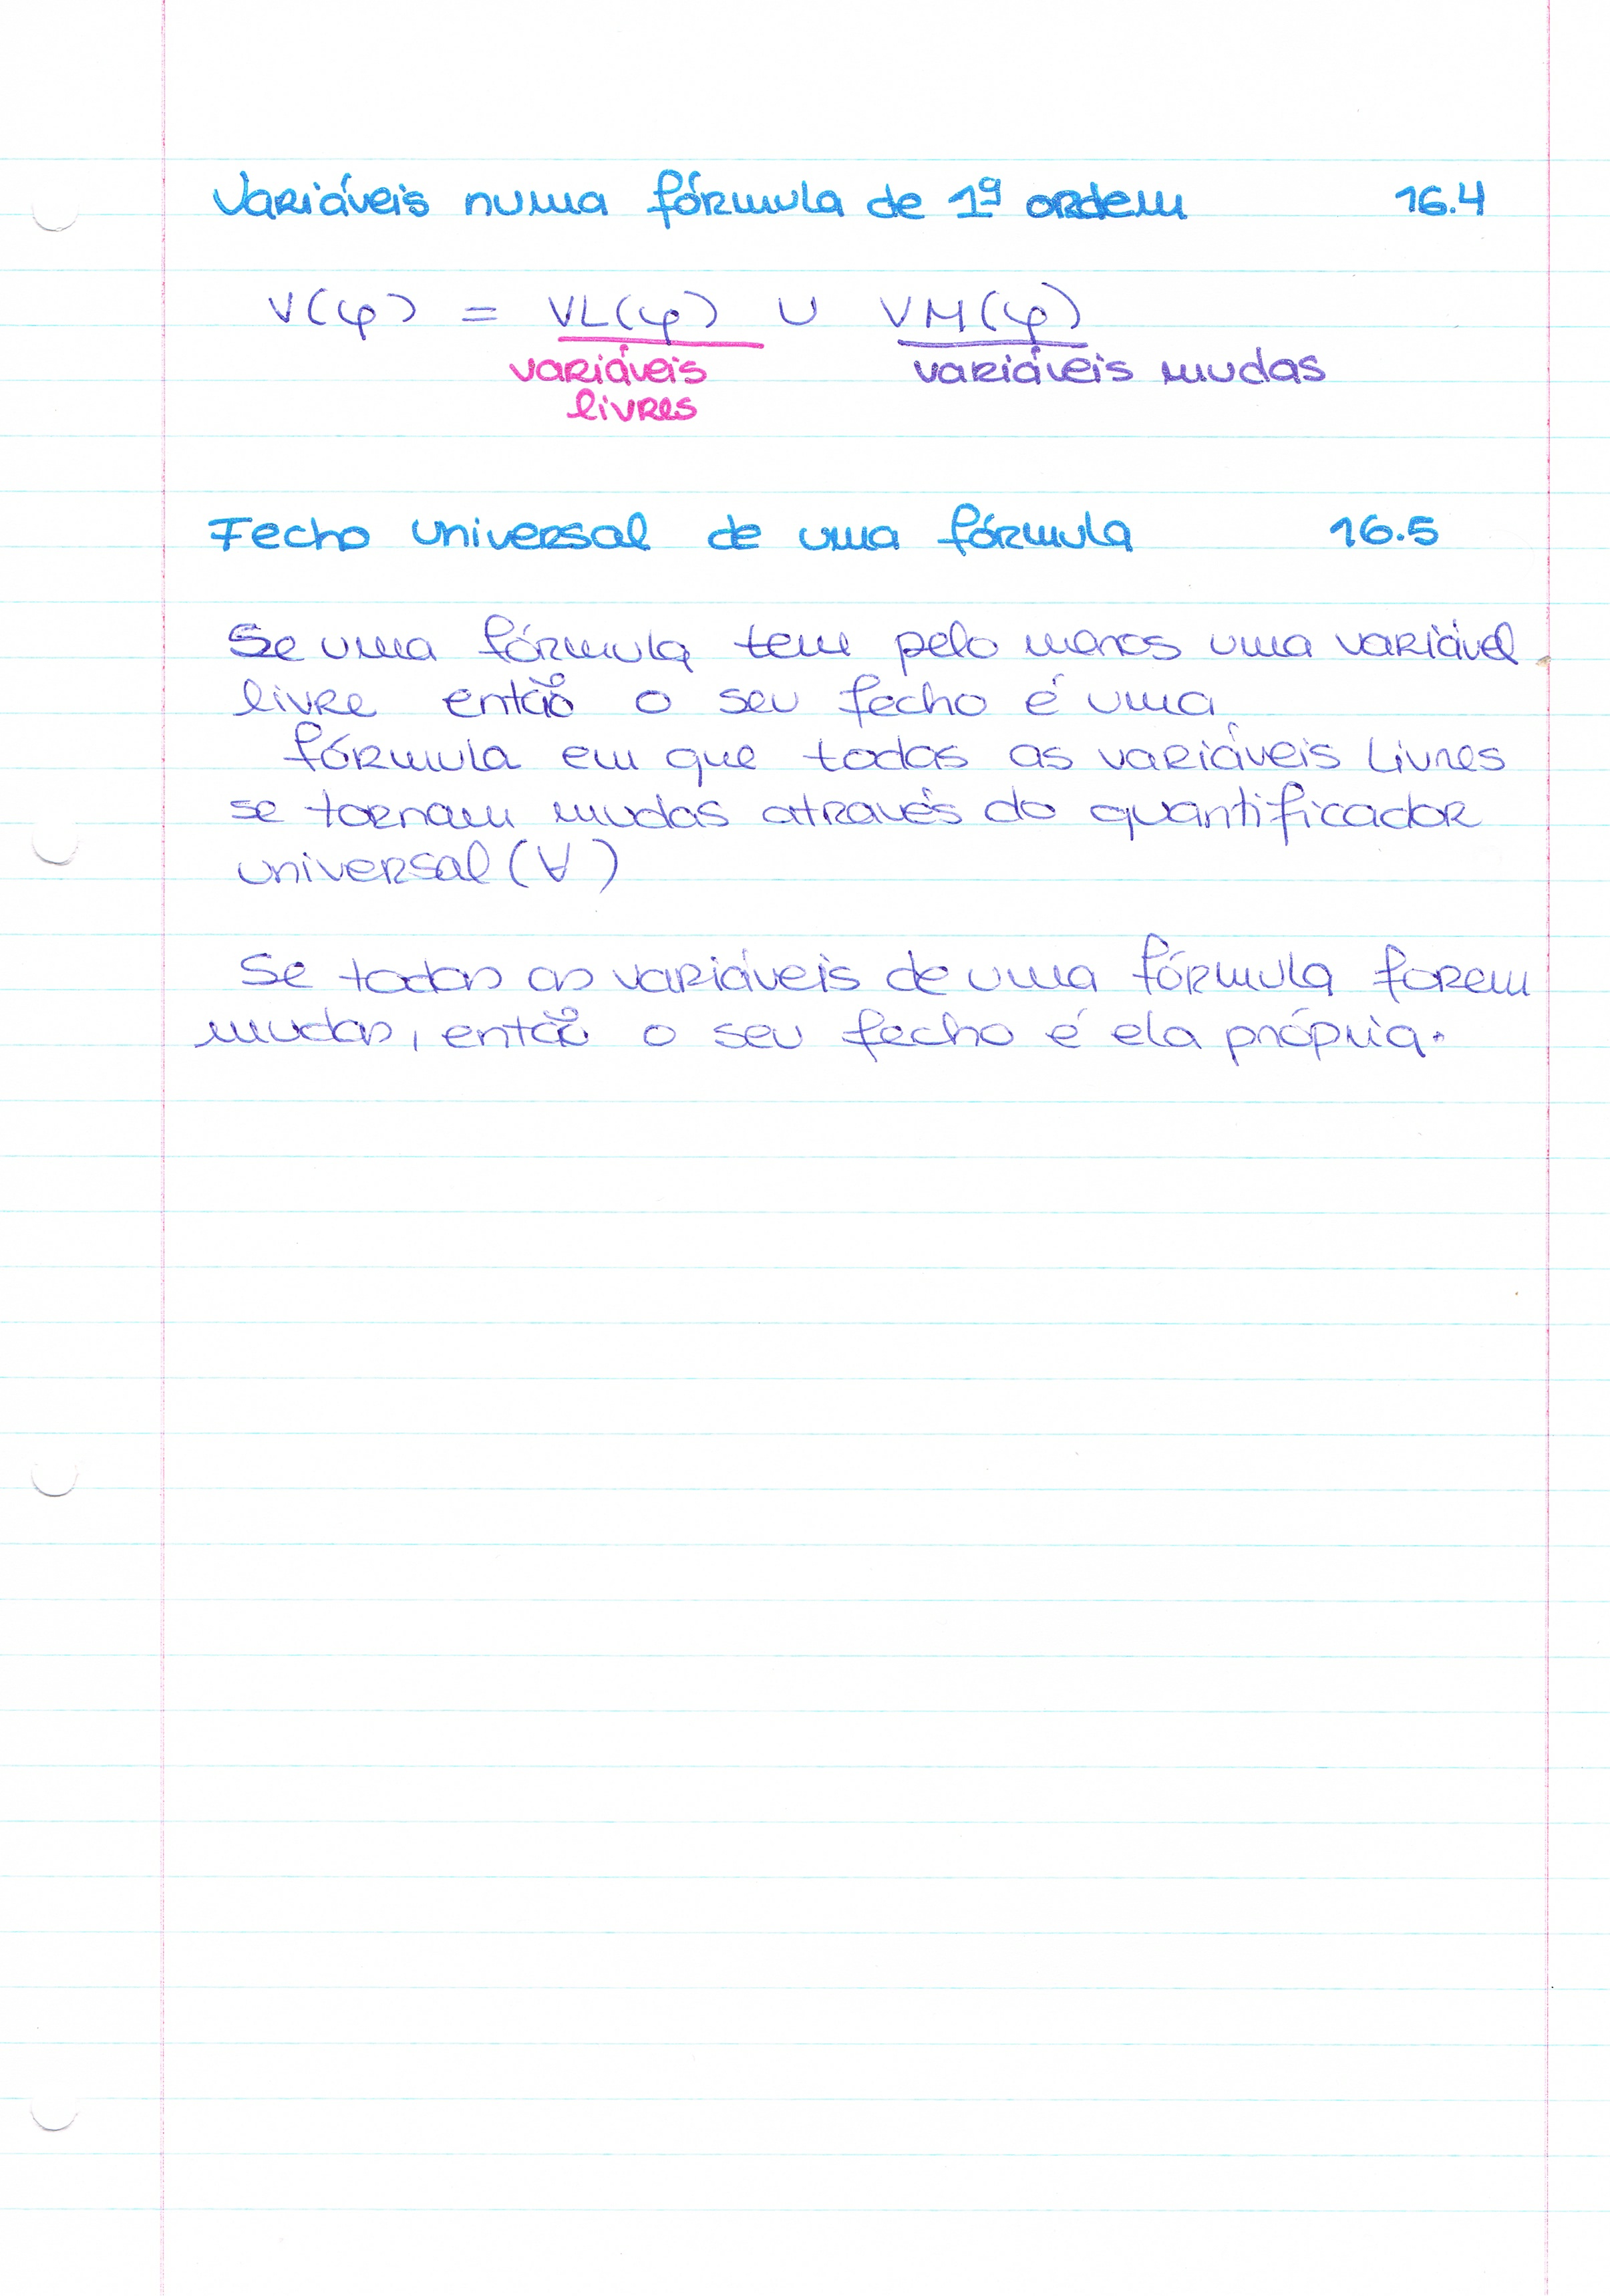 Variáveis numa fórmula de 1ª ordem 16.4
V(φ) = VL(φ) ∪ VM(φ)
variáveis variáveis mudas
livres
Fecho universal de uma fórmula 16.5
Se uma fórmula tem pelo menos uma variável
livre então o seu fecho é uma
fórmula em que todas as variáveis livres
se tornam mudas através do quantificador
universal (∀)
Se todas as variáveis de uma fórmula forem
mudas, então o seu fecho é ela própria.